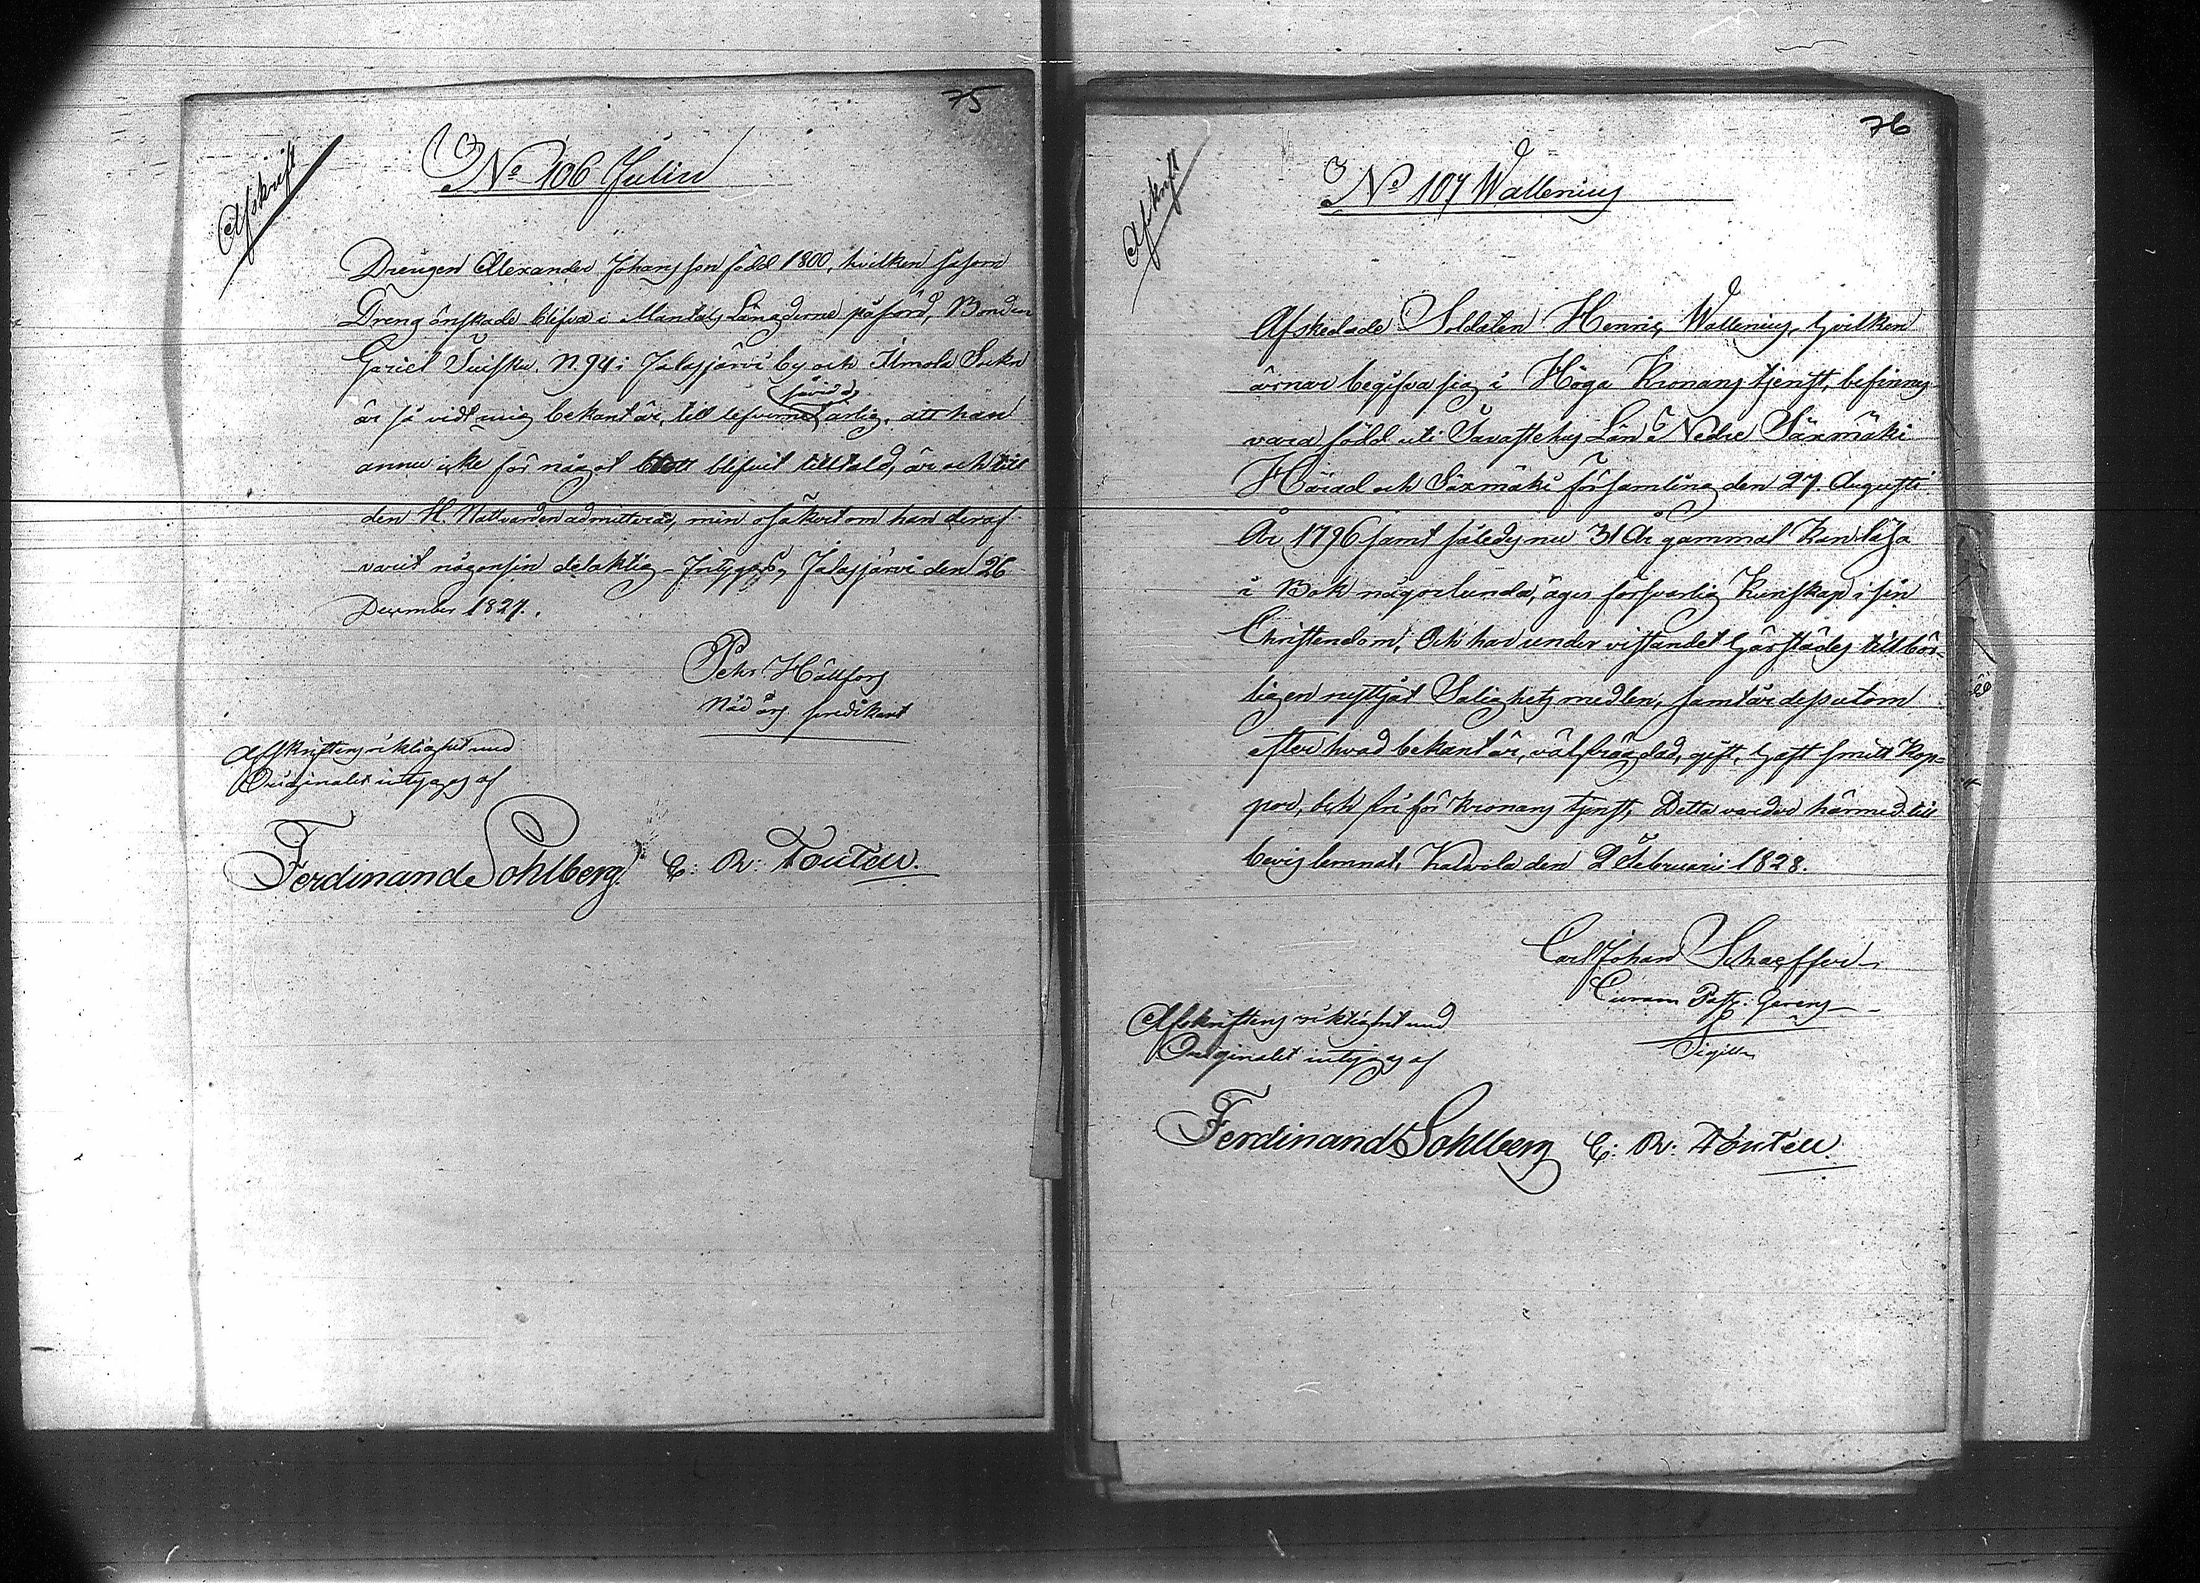 75
Afskrift
No 106 Julin
Drengen Alexander Johansson född 1800, hvilken såsom
Dreng önskade blifva i Mantals Längderne påförd, Bonden
Gabriel Luisku N 94 i Jalasjärvi by och Ilmola Sokn
är så vidt mig bekant är, till lefvernet arlig, att han
annu icke för något brott blifvit tilltald, är och till
den H. Nattvarden admitterad, men osäkert om han deraf
varit någonsin delaktig. Intygas, Jalasjärvi den 26
December 1827.
Petr Hällfors
Nåd års predikant
Afskriftens riktighet med
Originalet intygas af
Ferdinand Sohlberg. C: R: Toutell.
76
Afskrift
No 107 Wallenius
Afskedade Soldaten Henric Wallenius, hvilken
ärnar begifva sig i Höga Kronans tjenst, befinnes
vara född uti Tavastehus Län Nedre Säxmäki
Härad och Säxmäki församling den 27. Augusti
År 1796 samt således nu 31 År gammal Kan läsa
i Bok någorlunda, äger försvarlig Kunskap i sin
Christendom, Och har under vistandet härstädes tillbör-
ligen nyttjat Salighets medlen, samt är desutom
efter hvad bekant är, välfrägdad, gift, haft små Kop-
por, och fri för Kronans tjenst, Detta varder härmed till
bevis lemnat, Kalvola den 2 Februarii 1828.
Carl Johan Schaeffer
Curam Past: Gerens
Sigill
Afskriftens riktighet med
Originalet intygas af
Ferdinand Sohlberg C: R: Toutell.